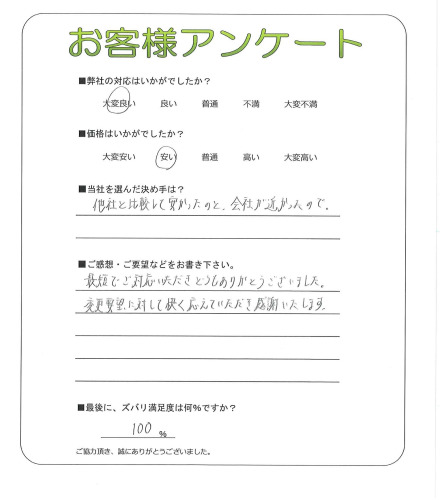 お客様アンケート
■弊社の対応はいかがでしたか？
大変良い 良い 普通 不満 大変不満
■価格はいかがでしたか？
大変安い 安い 普通 高い 大変高い
■当社を選んだ決め手は？
他社と比較して安かったのと、会社が近かったので。
■ご感想・ご要望などをお書き下さい。
最短でご対応いただきどうもありがとうございました。
変更要望に対して快く応えていただき感謝いたします。
■最後に、ズバリ満足度は何%ですか？
100 %
ご協力頂き、誠にありがとうございました。